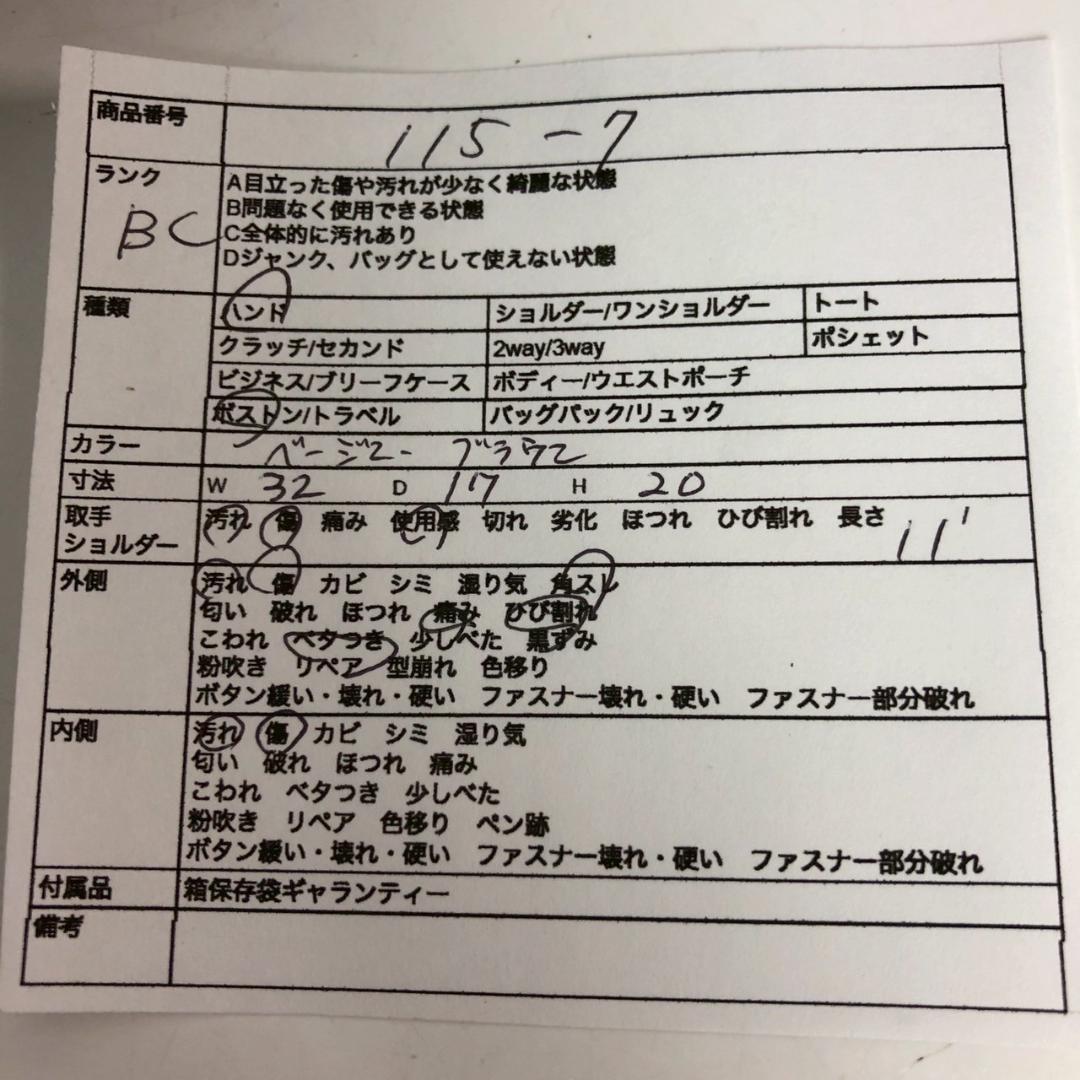 商品番号 115-7
ランク BC
A目立った傷や汚れが少なく綺麗な状態
B問題なく使用できる状態
C全体的に汚れあり
Dジャンク、バッグとして使えない状態
種類 ハンド ショルダー/ワンショルダー トート
クラッチ/セカンド 2way/3way ポシェット
ビジネス/ブリーフケース ボディー/ウエストポーチ
ボストン/トラベル バッグパック/リュック
カラー ベージュー ブラウン
寸法 W 32 D 17 H 20
取手 汚れ 傷 痛み 使用感 切れ 劣化 ほつれ ひび割れ 長さ 11
ショルダー
外側 汚れ 傷 カビ シミ 湿り気 角スレ
匂い 破れ ほつれ 痛み ひび割れ
こわれ ベタつき 少しべた 黒ずみ
粉吹き リペア 型崩れ 色移り
ボタン緩い・壊れ・硬い ファスナー壊れ・硬い ファスナー部分破れ
内側 汚れ 傷 カビ シミ 湿り気
匂い 破れ ほつれ 痛み
こわれ ベタつき 少しべた
粉吹き リペア 色移り ペン跡
ボタン緩い・壊れ・硬い ファスナー壊れ・硬い ファスナー部分破れ
付属品 箱保存袋ギャランティー
備考